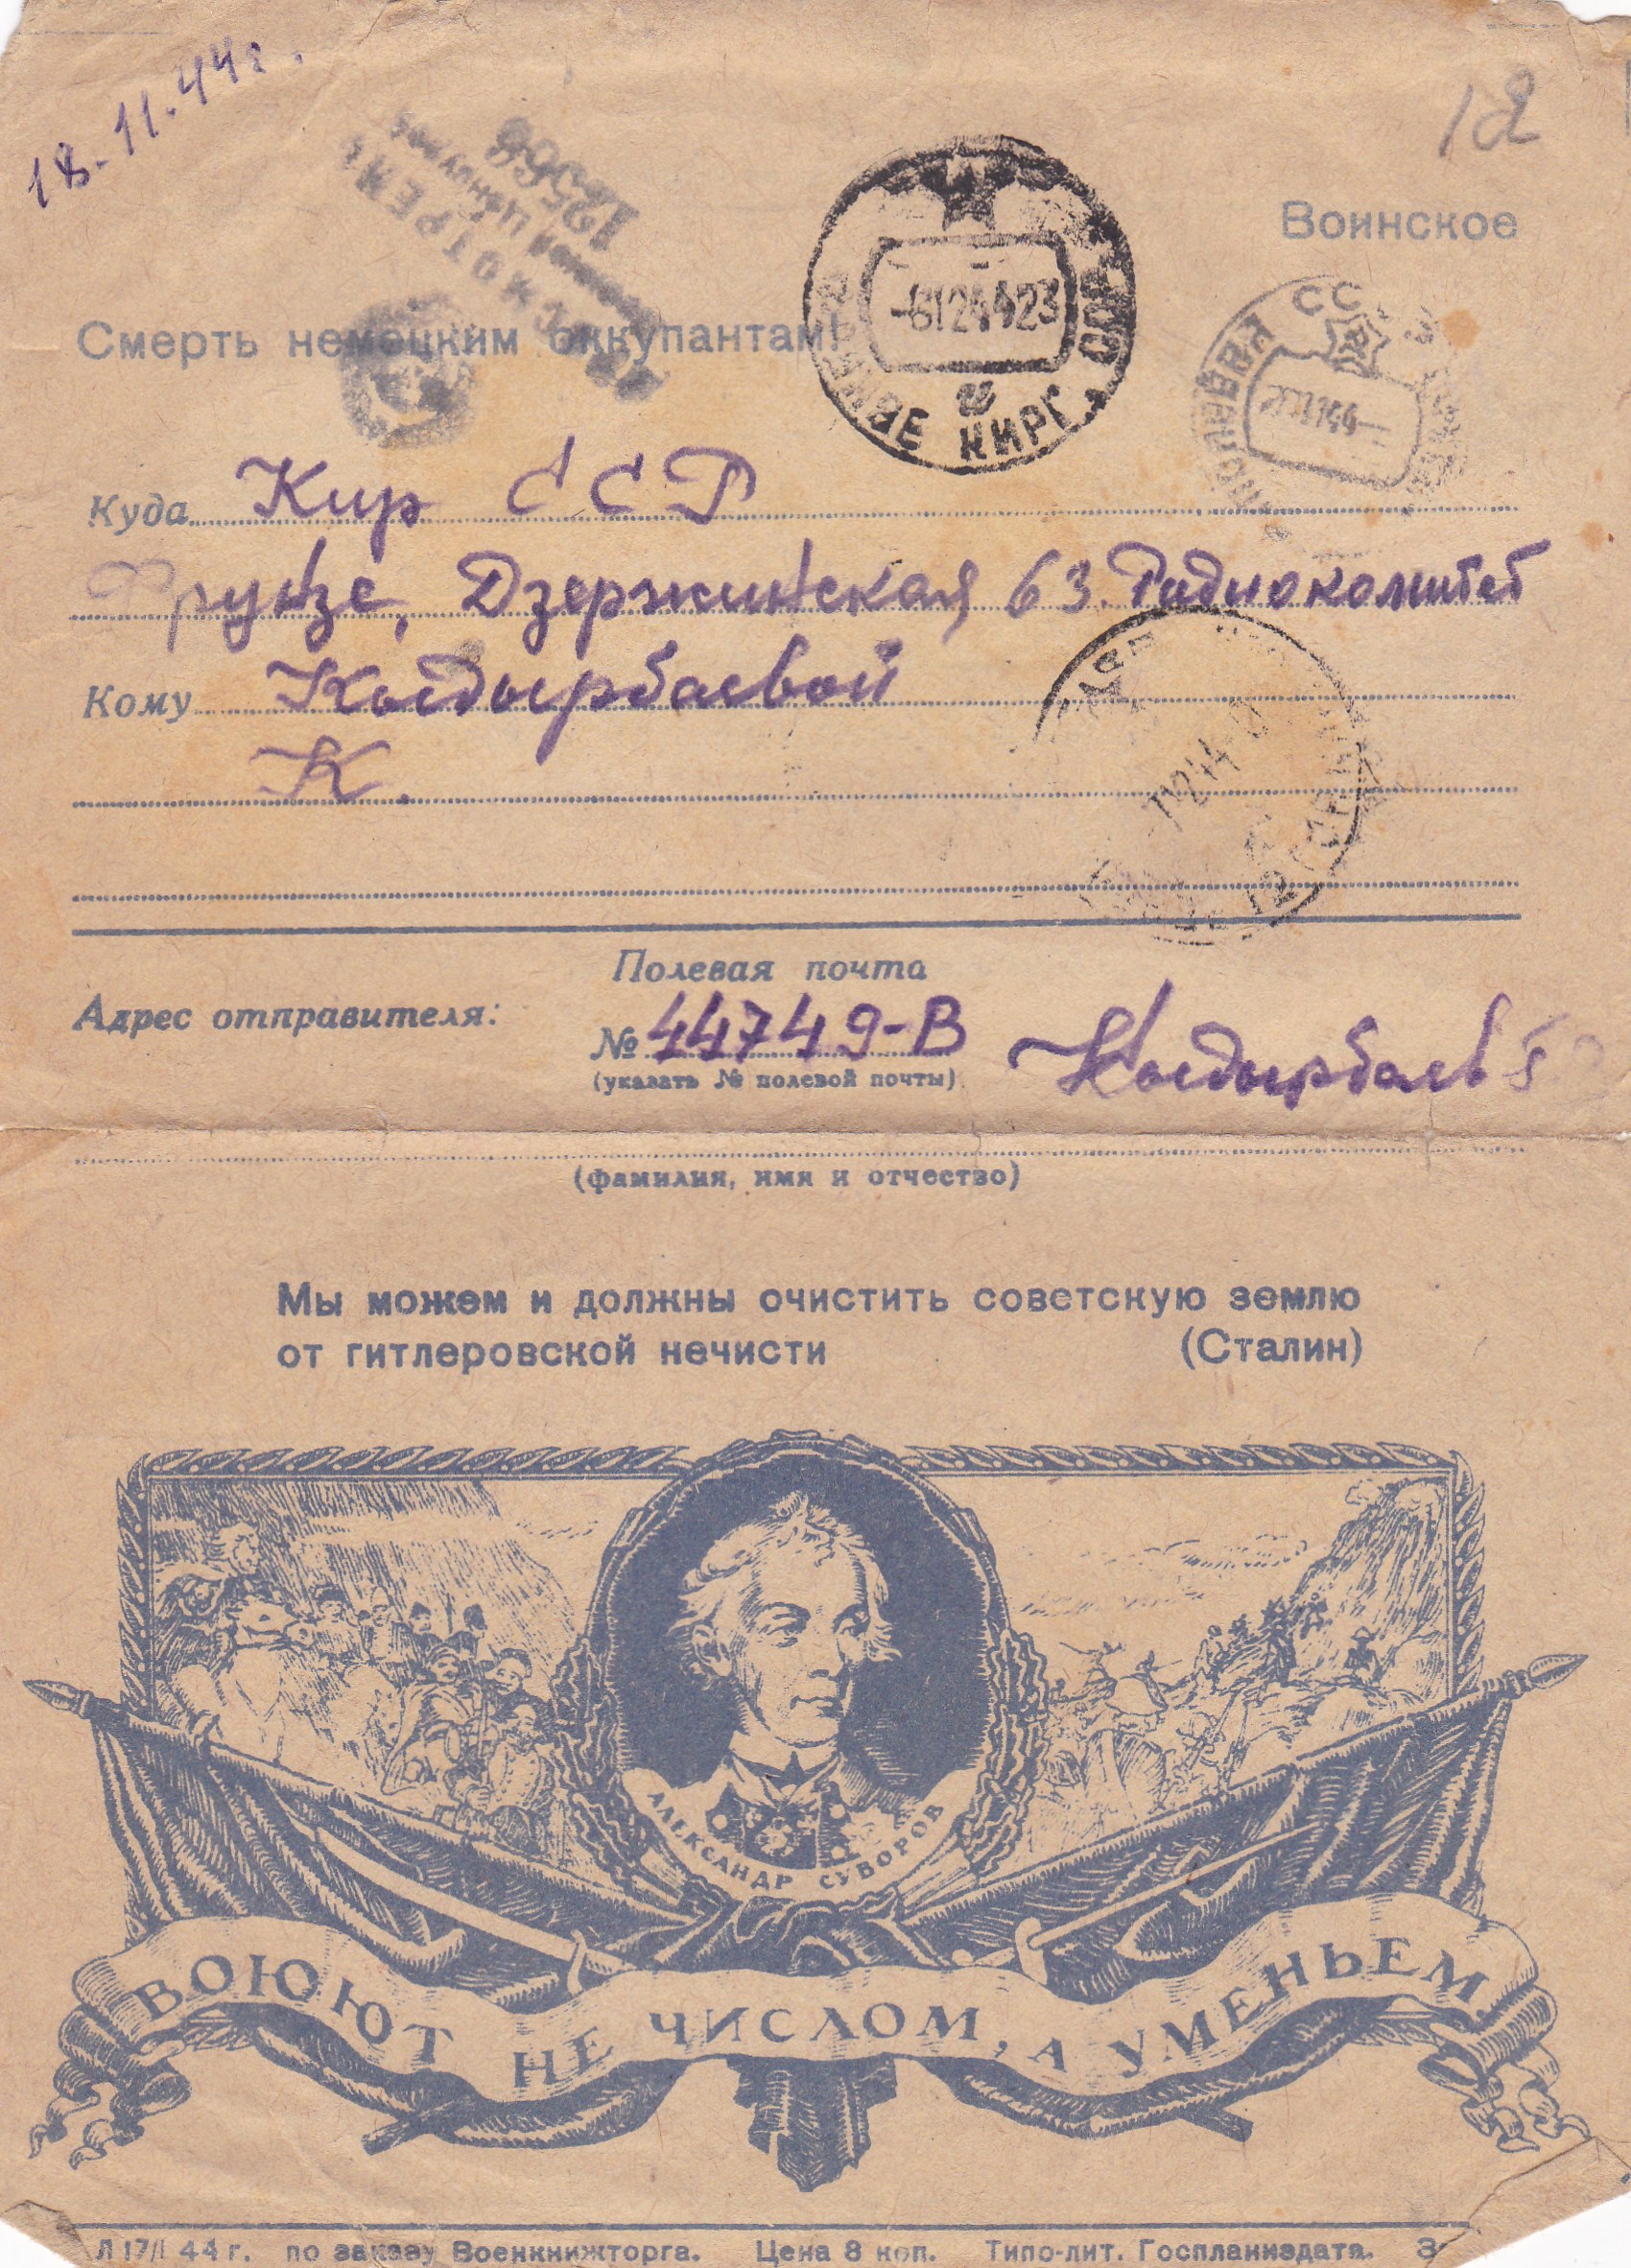 18.11.44г.
12
ПРОСМОТРЕНО
Военной Цензурой
19566
Воинское
Смерть немецким оккупантам!
-6 12 44 23
КИРГ. ССР
ПОЛЕВАЯ
Куда Кир ССР
Фрунзе, Дзержинская 63. Радиокомитет
Кому Кыдырбаевой
К.
12 44
Полевая почта
Адрес отправителя: № 44749-В Кыдырбаев
(указать № полевой почты)
(фамилия, имя и отчество)
Мы можем и должны очистить советскую землю
от гитлеровской нечисти (Сталин)
АЛЕКСАНДР СУВОРОВ
ВОЮЮТ НЕ ЧИСЛОМ, А УМЕНЬЕМ.
Л 17/I 44 г. по заказу Военкнижторга. Цена 8 коп. Типо-лит. Госпланиздата.